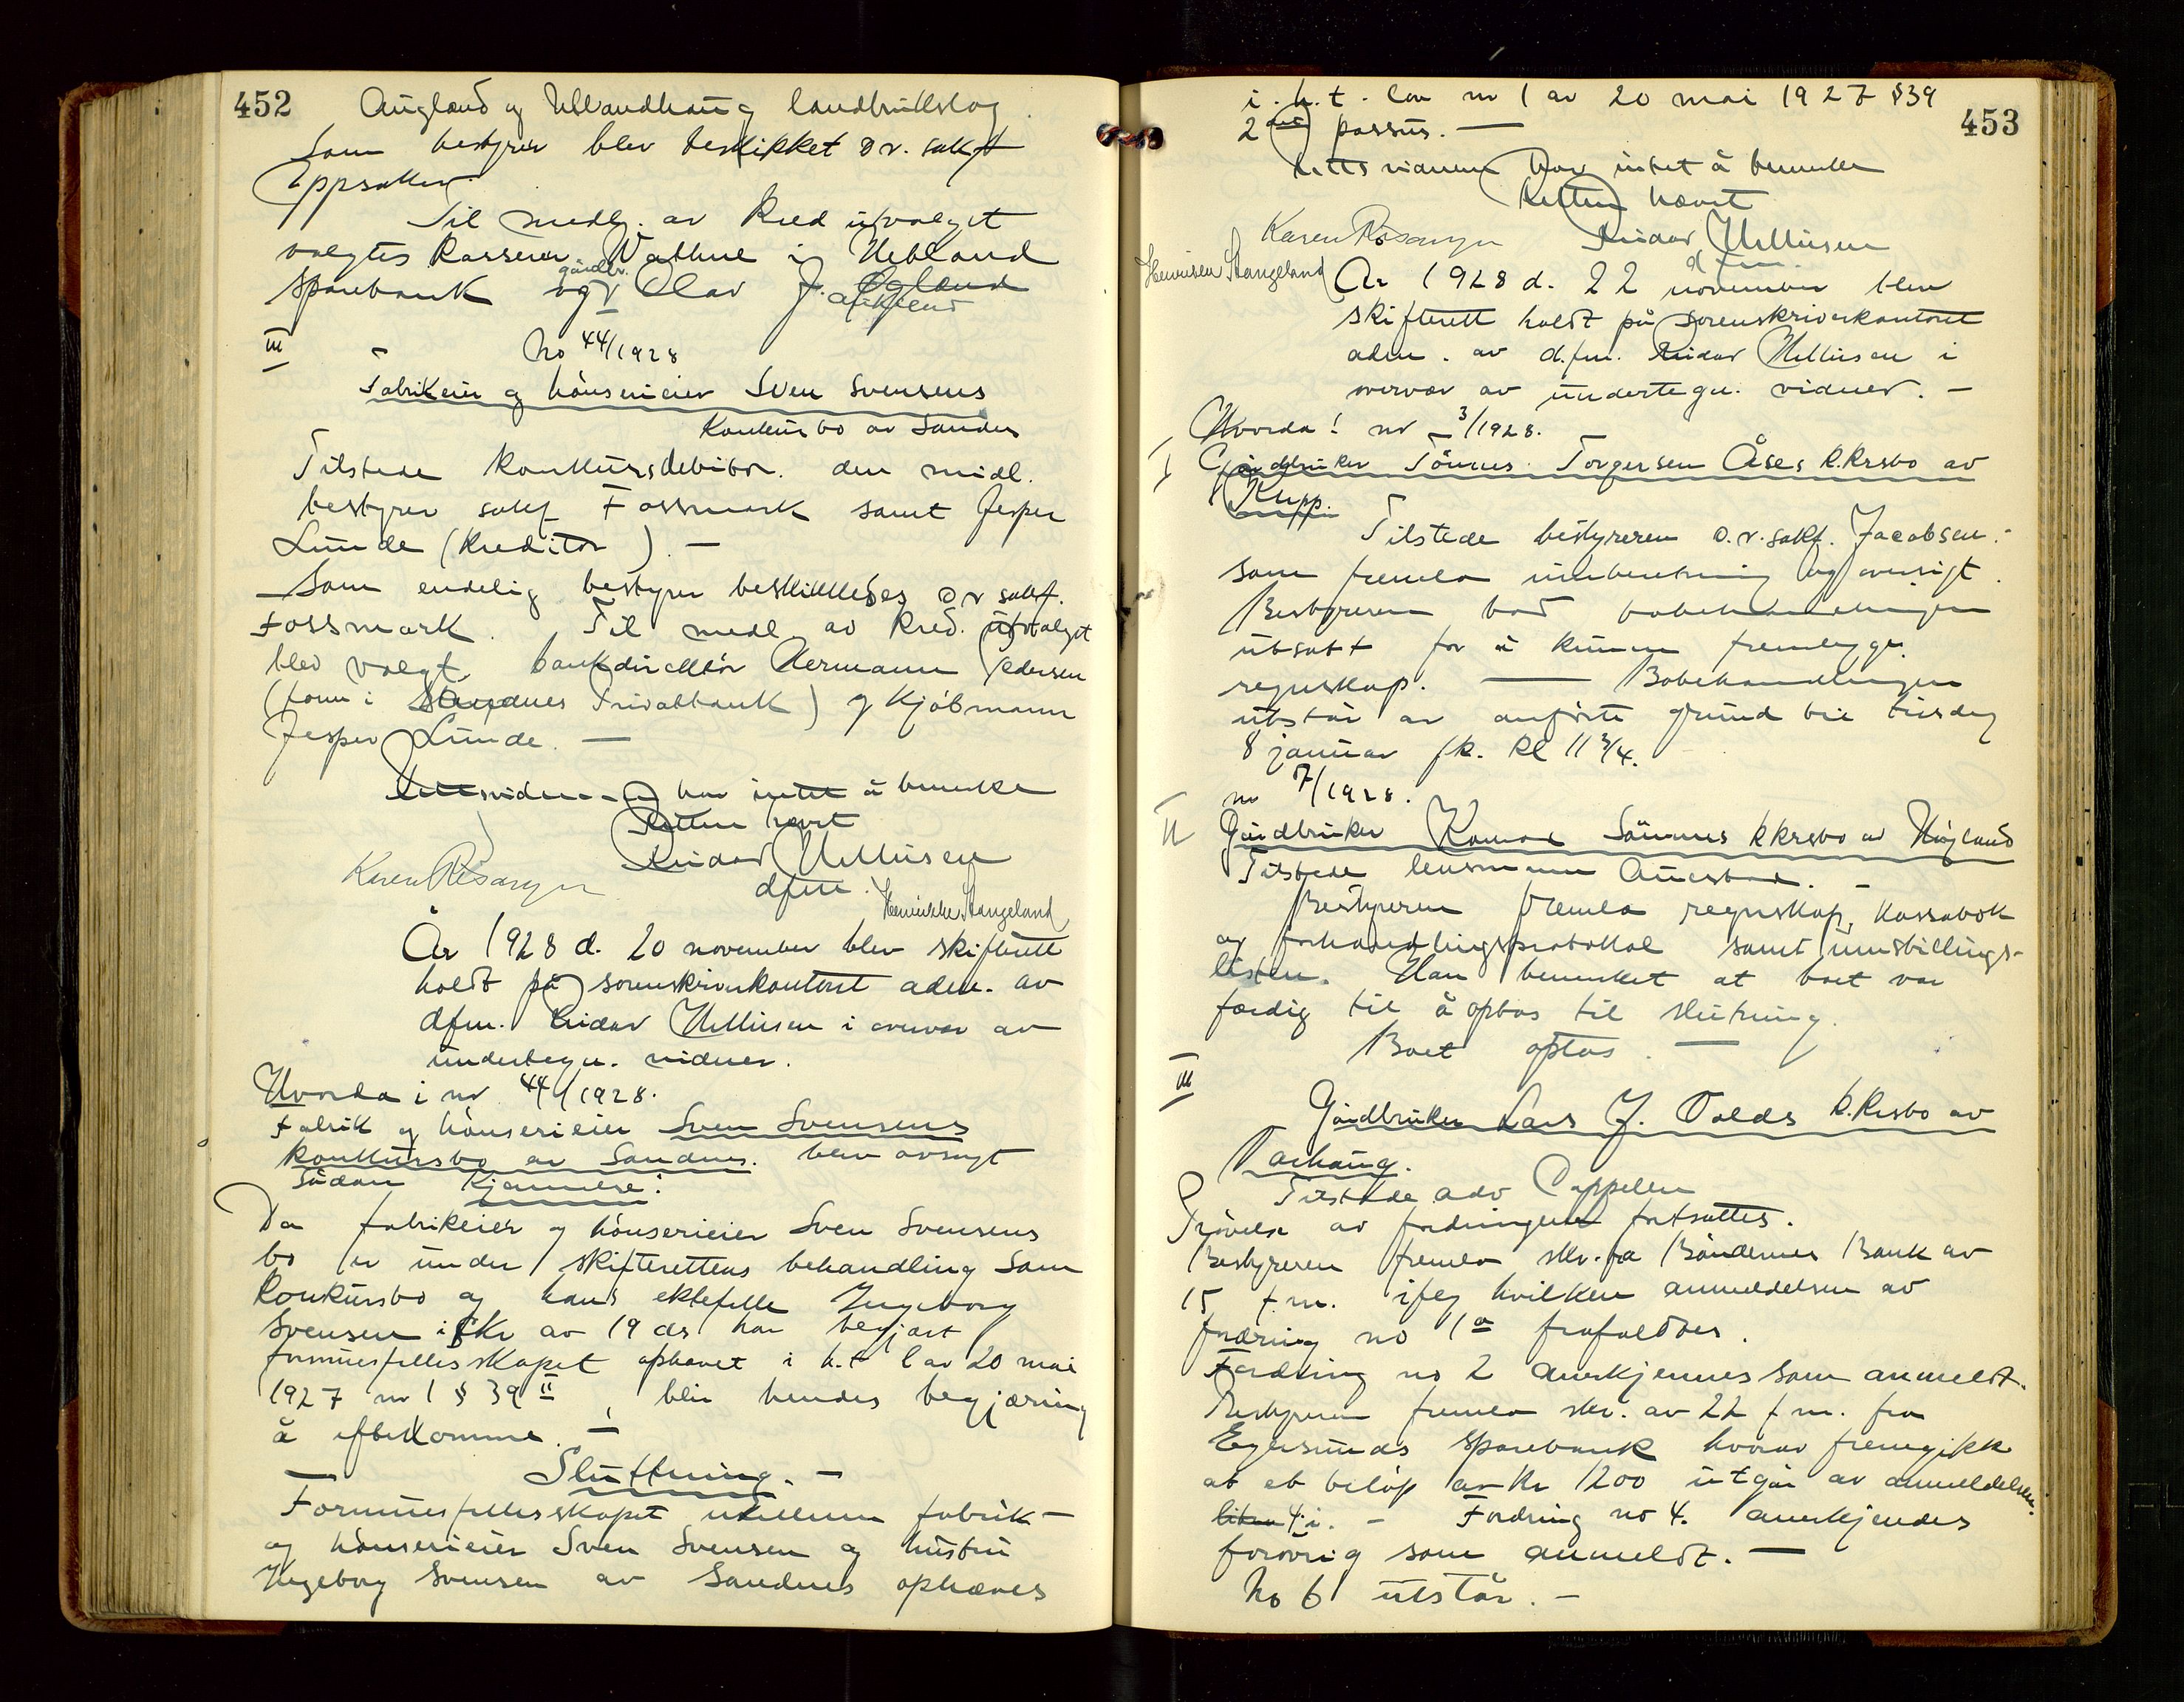 452
Augland og Ullandhaug landbrukslag
Som bestyrer blev beskikket o.r. sakf
Eppsatter.
Til medlj. av kred utvalget
valgtes kasserer Vathne i Hetland
gårdbr.
Sparebank og Olav J. Ogland
Aukland
III
No 44/1928
Fabrikeier og hönserieier Sven Svensens
Konkürsbo av Sandnes
Tilstede konkursdebitor. den midl.
bestyrer sakf Fossmark samt Jesper
Lunde (kreditor). —
Som endelig bestyrer beskikkedes o r sakf.
Fossmark. Til medl av kred. utvalget
blev valgt bankdirektör Hermann Pedersen
(form i Sandnes Privatbank) og kjöbmann
Jesper Lunde. —
Rettsvidnene har intet å bemerke
Retten hævet
Reidar Mellusen
dfm.
Karen Rosaryn
Henrikke Stangeland
År 1928 d. 20 november blev skifterett
holdt på sorenskriverkontoret adm. av
dfm. Reidar Mellusen i overvær av
undertegn. vidner.
Hvorda i nr 44/1928.
Fabrik og hönserieier Sven Svensens
konkursbo av Sandnes. blev avsagt
sådan kjennelse:
Da fabrikeier og hönserieier Sven Svensens
bo er under skifterettens behandling som
konkursbo og hans ektefelle Ingeborg
Svensen i skr av 19 ds har begjært
formuesfellesskapet ophævet i h.t l av 20 mai
1927 nr 1 § 39 II, blir hendes begjæring
å efterkomme. —
Sluttning. —
Formuesfellesskapet mellem fabrik-
og hönserieier Sven Svensen og hustru
Ingeborg Svensen av Sandnes ophæves
453
i. h. t. lov nr 1 av 20 mai 1927 §39
2det passus. —
Rettsvidnene har intet å bemerke
Retten hævet
Karen Rosaryn Reidar Mellusen
dfm.
Henriken Stangeland
År 1928 d. 22 november blev
skifterett holdt på sorenskriverkontoret
adm. av d.fm. Reidar Mellusen i
overvær av undertegn. vidner. —
Hvorda! nr 3/1928.
I Gårdbruker Tönnes Torgersen Åses k.krsbo av
Klepp.
Tilstede bestyreren o.r.sakf. Jacobsen.
som fremla innberetning og oversigt.
Bestyreren bad bobehandlingen
utsatt for å kunne fremlegge
regnskap. — Bobehandlingen
utstår av anförte grund til tirsdag
8 januar fk. kl 11 3/4.
nr 7/1928.
II Gårdbruker Konrad Sömmes kkrsbo av Högland
Tilstede lensmann Auestad. —
Bestyreren fremla regnskap, kassabok
og forhandlingsprotokol samt innstillings-
listen. Han bemerket at boet var
færdig til å optas til slutning.
Boet optas. —
III
Gårdbruker Lars J. Valds k.krsbo av
Varhaug.
Tilstede adv Cappelen
Prövelse av fordringene fortsattes.
Bestyreren fremla skr. fra Böndernes Bank av
15 f.m. ifölg hvilken anmeldelsen av
fordring no 1a frafaldtes.
Fordring no 2 anerkjennes som anmeldt.
Bestyreren fremla skr. av 22 f m. fra
Egersunds Sparebank hvorav fremgikk
at et belöp av kr 1200 utgår av anmeldelsen
litra 4 i. — Fordring no 4. anerkjendes
forövrig som anmeldt. —
No 6 utstår. —